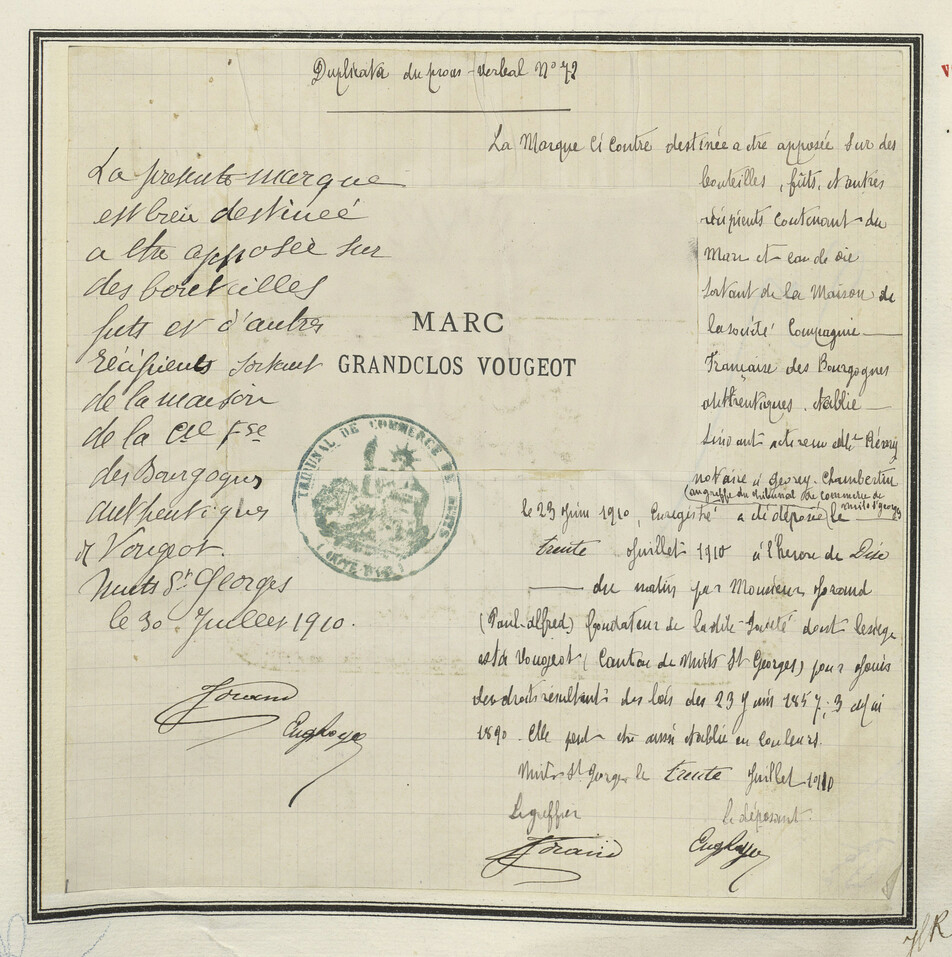 Duplicata du procès-verbal N° 72
La presente marque
est bien destineé
a etre apposée sur
des bouteilles
futs et d'autres
récipients sortant
de la maison
de la Cie Fse
des Bourgognes
authentiques
à Vougeot.
Nuits St Georges
le 30 Juillet 1910.
MARC
GRANDCLOS VOUGEOT
TRIBUNAL DE COMMERCE DE NUITS
(COTE-D'OR)
La Marque ci contre destinée a etre apposée sur des
bouteilles, fûts, et autres
récipients contenant du
Marc et eau de vie
sortant de la Maison de
la société Compagnie
Française des Bourgognes
authentiques. établie
suivant acte reçu de Me
notaire à Gevrey-Chambertin
(au greffe du tribunal de commerce de
nuits st georges
le 23 Juin 1910, Enregistré a été déposée le
trente Juillet 1910 à l'heure de Dix
du matin par Monsieur Jorand
(Paul-Alfred) fondateur de ladite Société dont le siege
est à Vougeot (Canton de Nuits St Georges) pour jouir
des droits résultant des lois des 23 Juin 1857, 3 Mai
1890. Elle peut etre aussi établie en couleurs.
Nuits St Georges le trente Juillet 1910
Le greffier le déposant.
Jorand
Jorand